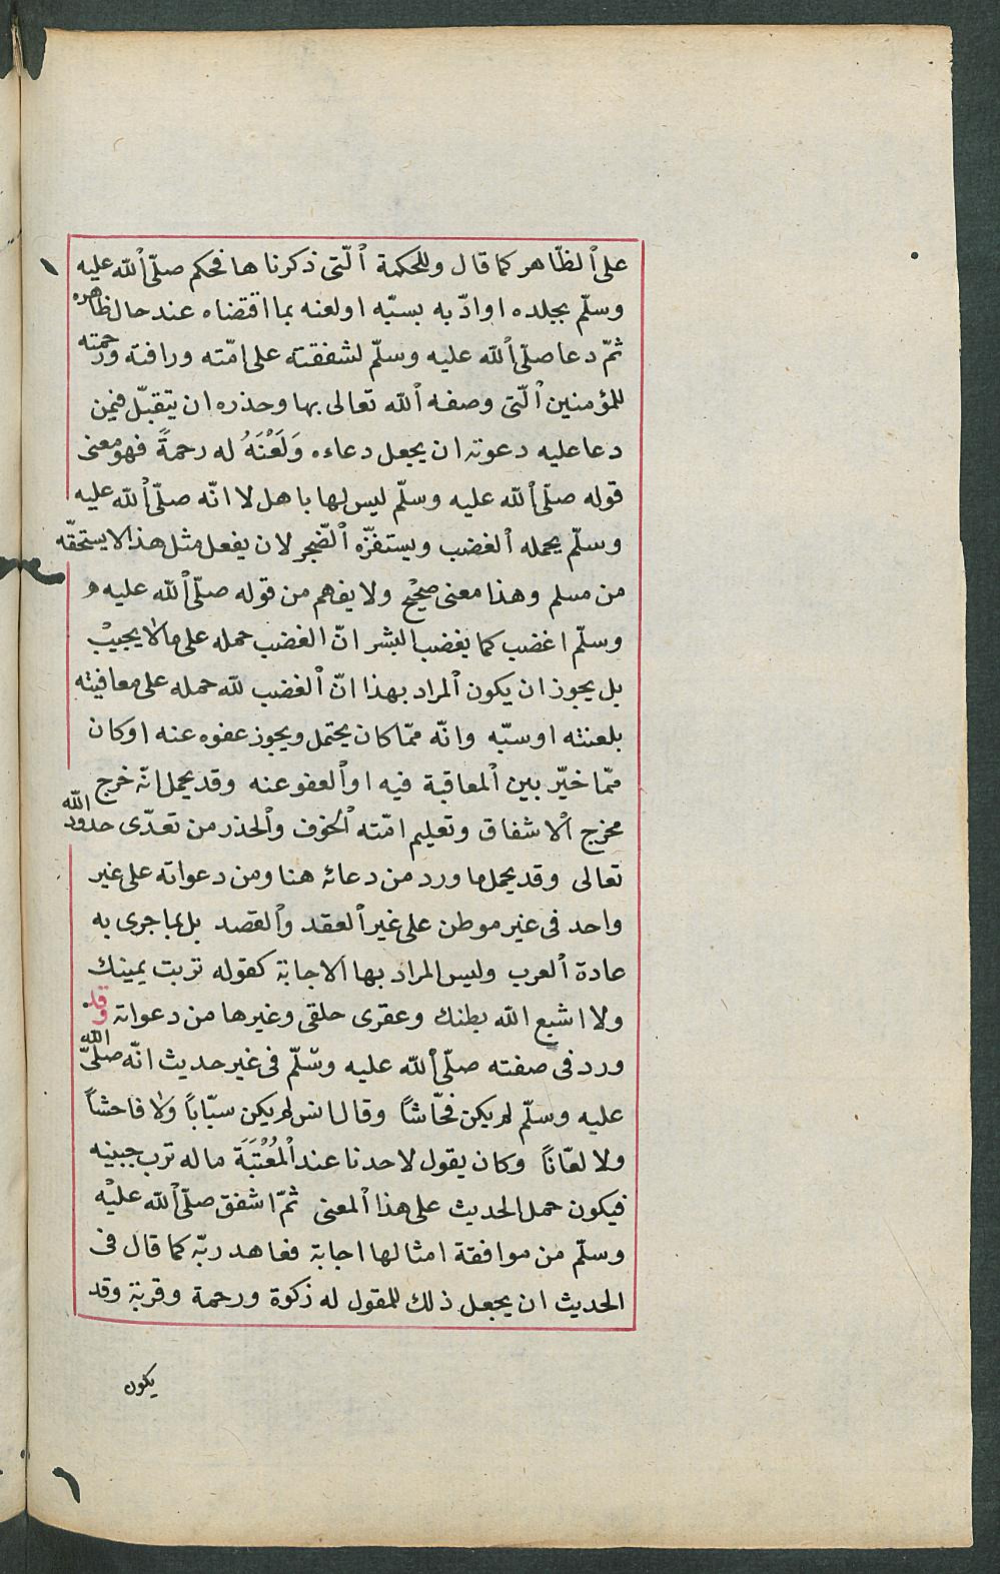 على ٱلظّاهر كما قال وللحكمة ٱلّتى ذكرناها فحكم صلّى ٱلله عليه
وسلّم بجلده او ادّبه بسبّه او لعنه بما اقتضاه عند حال ظاهره
ثمّ دعا صلّى ٱلله عليه وسلّم لشفقته على امّته ورافته ورحمته
للمؤمنين ٱلّتى وصفه ٱلله تعالى بها وحذره ان يتقبّل فيمن
دعا عليه دعوته ان يجعل دعاءه وَلَعْنَهُ له رحمةً فهو معنى
قوله صلّى ٱلله عليه وسلّم ليس لها باهل لا انّه صلّى ٱلله عليه
وسلّم يحمله ٱلغضب ويستفزّه ٱلضّجر لان يفعل مثل هذا لا يستحقّه
من مسلم وهذا معنى صحيح ولا يفهم من قوله صلّى ٱلله عليه و
وسلّم اغضب كما يغضب البشر انّ الغضب حمله على مالا يجيب
بل يجوز ان يكون ٱلمراد بهذا انّ ٱلغضب لله حمله على معاقبته
بلعنته او سبّه وانّه ممّا كان يحتمل ويجوز عفوه عنه او كان
ممّا خيّر بين ٱلمعاقبة فيه او ٱلعفو عنه وقد يحمل انّه خرج
مخرج ٱلاشفاق وتعليم امّته ٱلخوف وٱلحذر من تعدّى حدود الله
تعالى وقد يحمل ما ورد من دعائه هنا ومن دعواته على غير
واحد فى غير موطن على غير ٱلعقد وٱلقصد بل بما جرى به
عادة ٱلعرب وليس المراد بها الاجابة كقوله تربت يمينك
ولا اشبع الله بطنك وعقرى حلقى وغيرها من دعواته وقد
ورد فى صفته صلّى ٱلله عليه وسّلّم فى غير حديث انّه صلّى الله
عليه وسلّم لم يكن فحّاشاً وقال انس لم يكن سبّاباً ولا فاحشاً
ولا لعّاناً وكان يقول لاحدنا عند ٱلمُعْتَبَةَ ماله ترب جبينه
فيكون حمل الحديث على هذا ٱلمعنى ثمّ اشفق صلّى ٱلله عليه
وسلّم من موافقة امثالها اجابة فعاهد ربّه كما قال فى
الحديث ان يجعل ذلك للمقول له زكوة ورحمة وقربة وقد
يكون